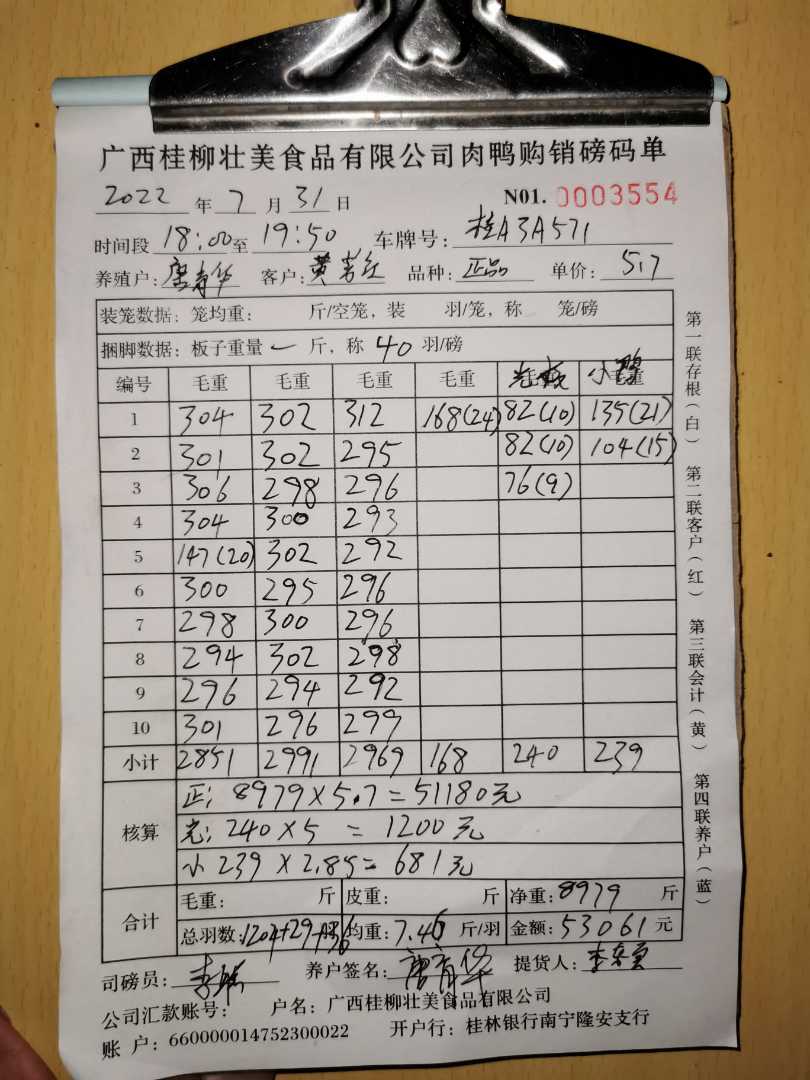 广西桂柳壮美食品有限公司肉鸭购销磅码单
2022 年 7 月 31 日 N01. 0003554
时间段 18:00 至 19:50 车牌号: 桂A3A571
养殖户: 客户: 黄 品种: 正品 单价: 5.7
装笼数据: 笼均重: 斤/空笼, 装 羽/笼, 称 笼/磅
捆脚数据: 板子重量 一 斤, 称 40 羽/磅
编号 毛重 毛重 毛重 毛重 小
1 304 302 312 168(24) 82(10) 135(21)
2 301 302 295 82(10) 104(15)
3 306 298 296 76(9)
4 304 300 293
5 147(20) 302 292
6 300 295 296
7 298 300 296
8 294 302 298
9 296 294 292
10 301 296 299
小计 2851 2991 2969 168 240 239
核算
正: 8979×5.7=51180元
光: 240×5 = 1200元
小 239×2.85= 681元
合计
毛重: 斤 皮重: 斤 净重: 8979 斤
总羽数: 1204+29+36 均重: 7.46 斤/羽 金额: 53061 元
司磅员: 养户签名: 提货人:
公司汇款账号: 户名: 广西桂柳壮美食品有限公司
账 户: 660000014752300022 开户行: 桂林银行南宁隆安支行
第一联存根(白) 第二联客户(红) 第三联会计(黄) 第四联养户(蓝)